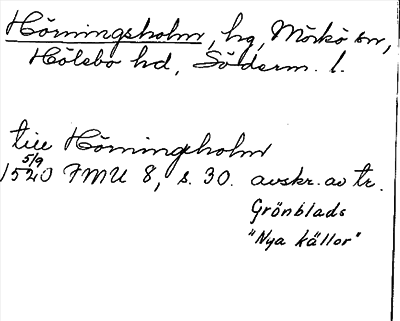 Hörningsholm, hg, Mörkö sn,
Hölebo hd, Söderm. l.
till Hörningholm
5/9
1520 FMU 8, s. 30. avskr. av tr.
Grönblads
"Nya källor"